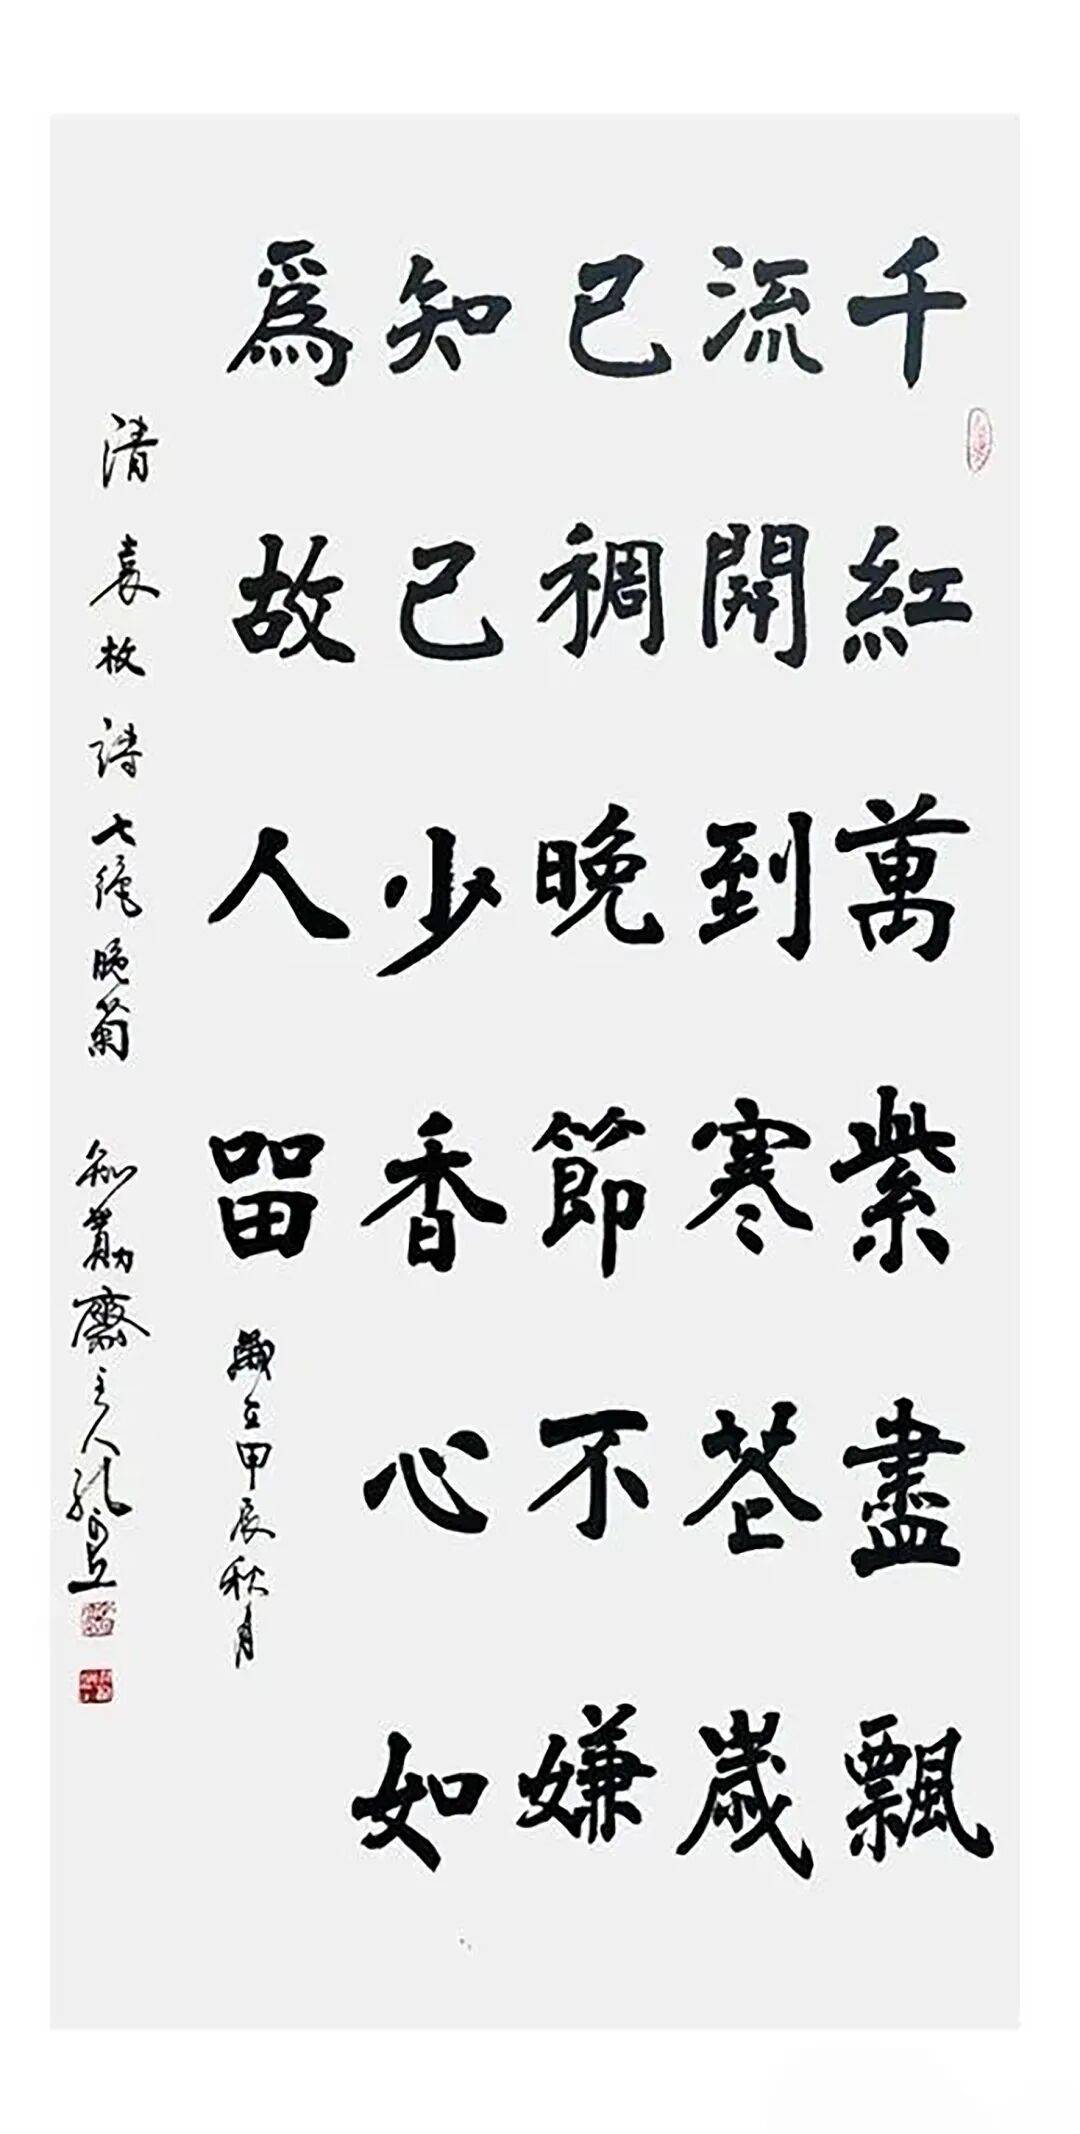 千紅萬紫盡飄
流開到寒苍歲
已稠晚節不嫌
知己少香心如
爲故人畱
歲在甲辰秋月
清袁枚詩七绝晚菊
知勤齋主人